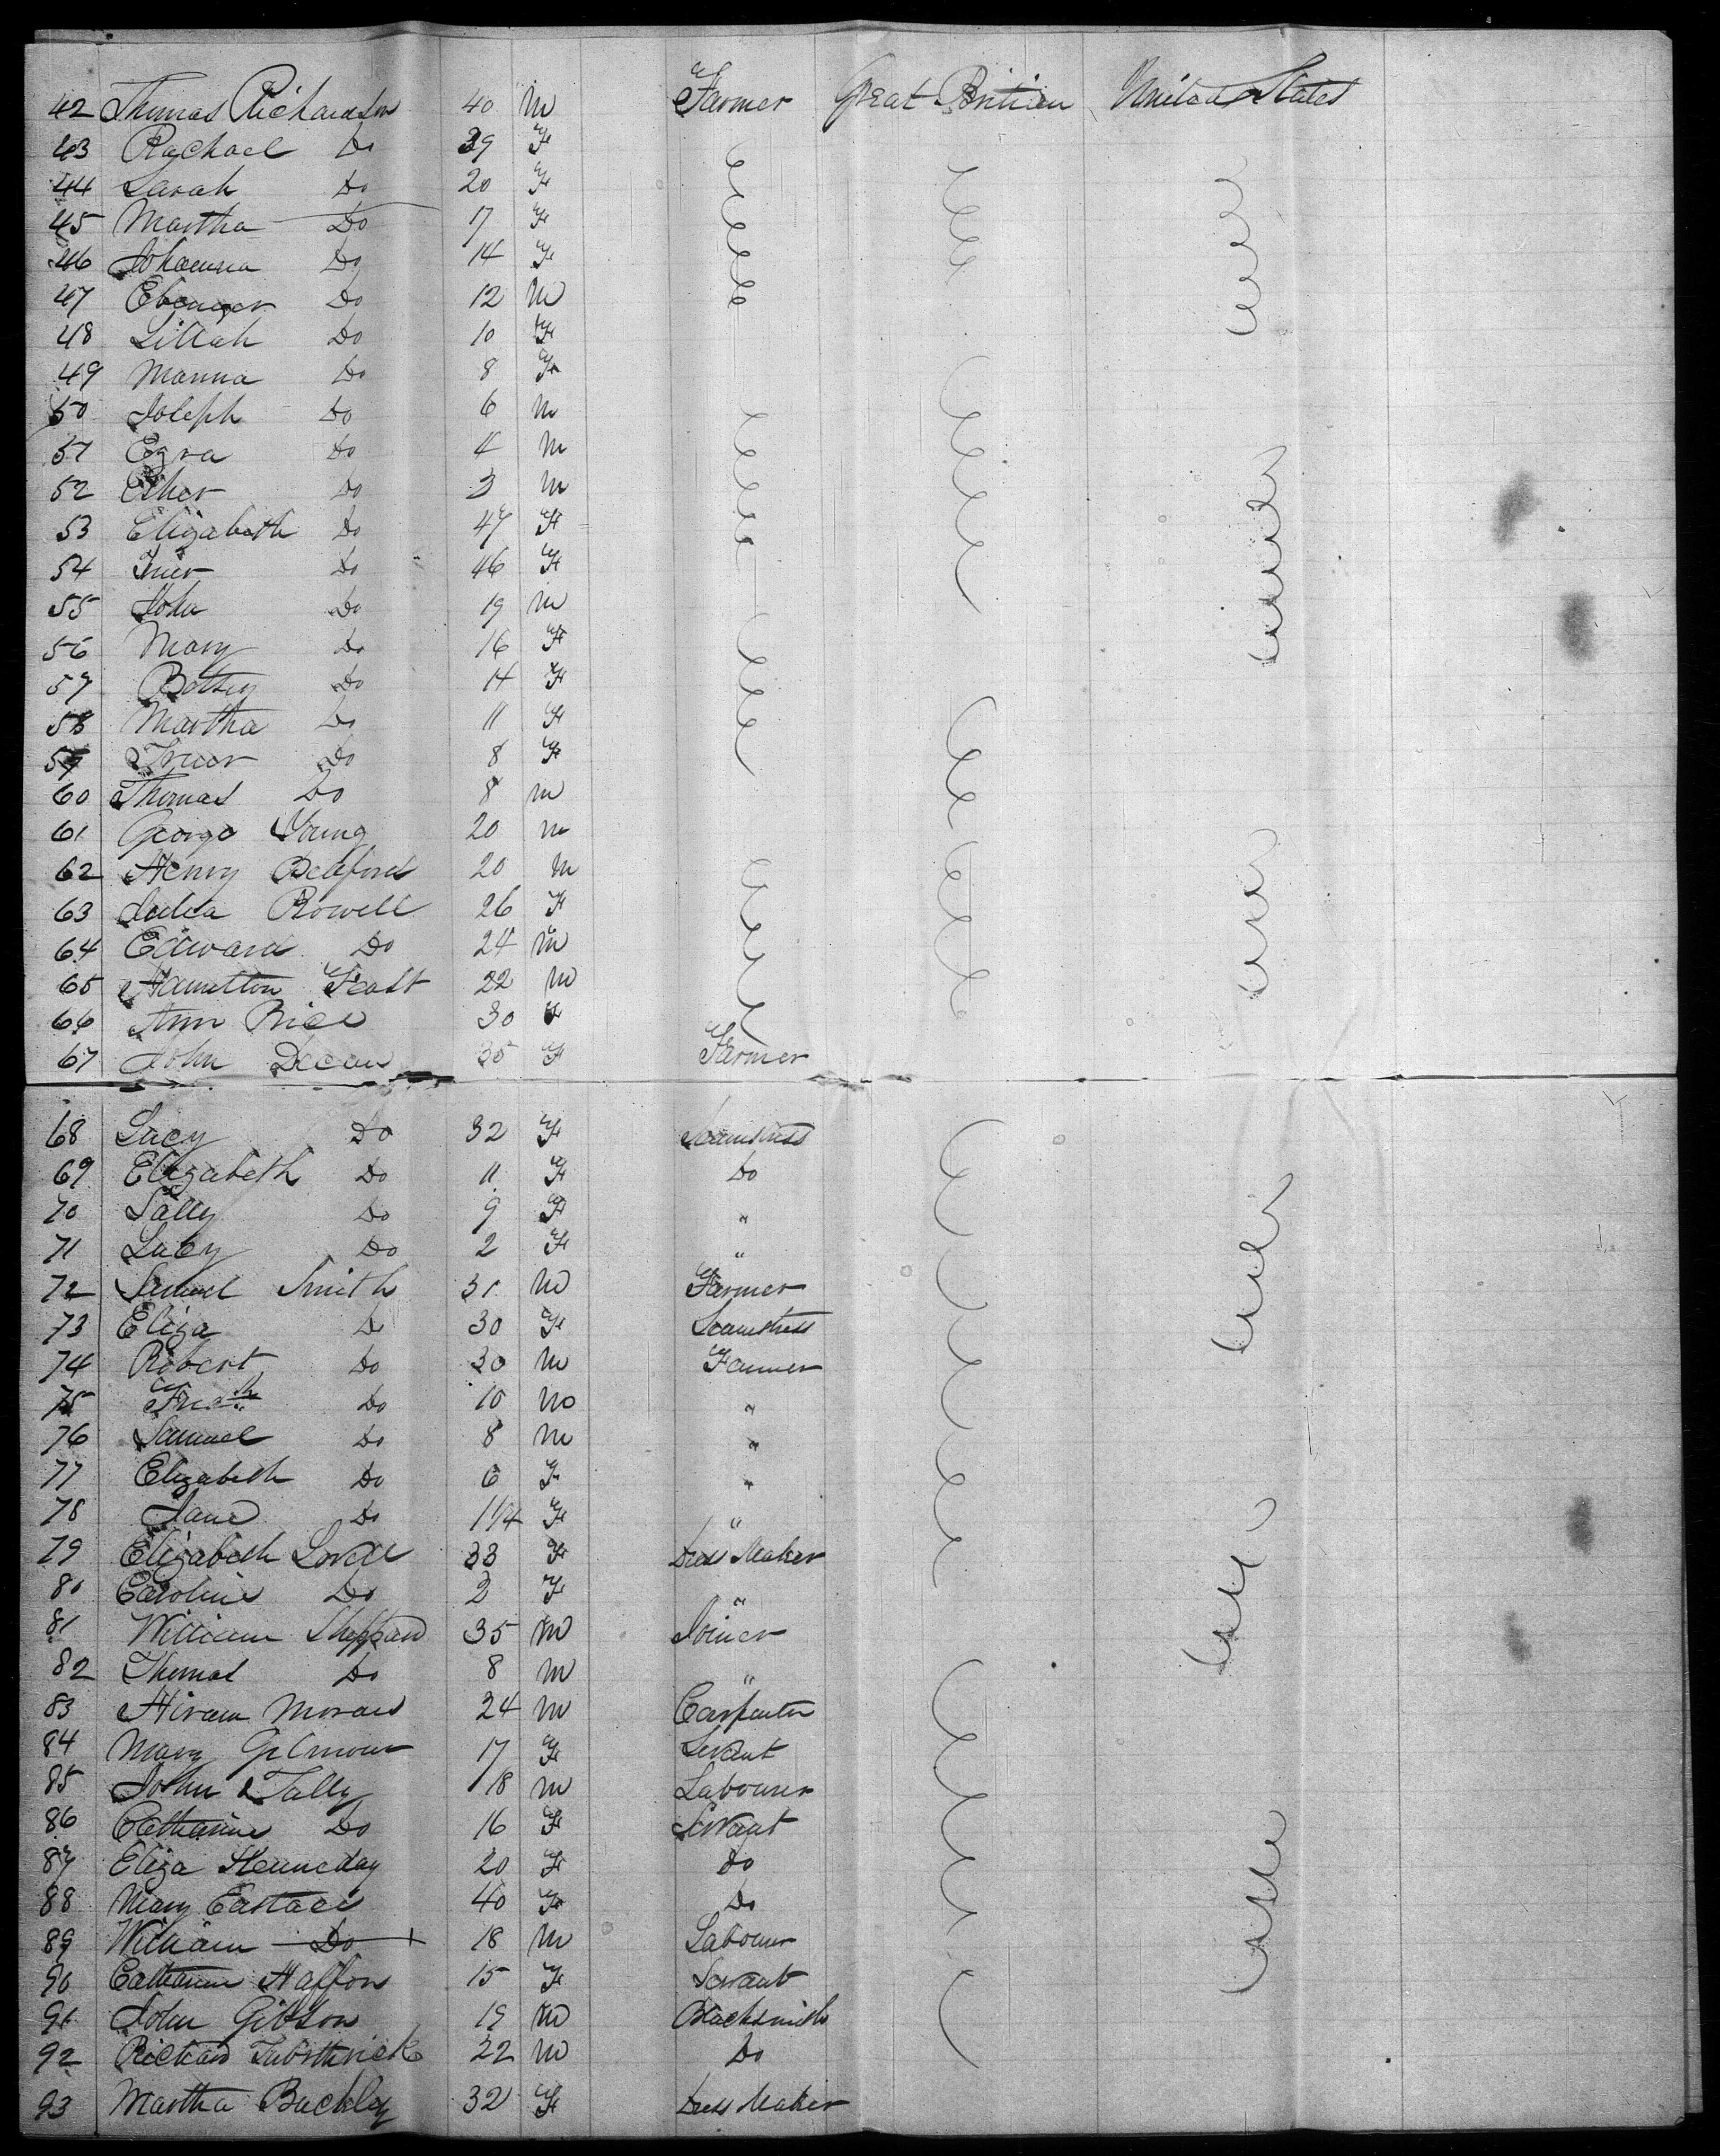 42 Thomas Richardson 40 M Farmer Great Britian United States
43 Rachael Do 39 F
44 Sarah Do 20 F
45 Martha Do 17 F
46 Johanna Do 14 F
47 Ebenezer Do 12 M
48 Lillah Do 10 F
49 Manna Do 8 F
50 Joseph Do 6 M
51 Ezra Do 4 M
52 Esher Do 3 M
53 Elizabeth Do 47 F
54 Do 46 F
55 John Do 19 M
56 Mary Do 16 F
57 Bettsy Do 14 F
58 Martha Do 11 F
59 Do 8 F
60 Thomas Do 8 M
61 George Young 20 M
62 Henry Bedford 20 M
63 Julia Rowell 26 F
64 Edward Do 24 M
65 Hamilton 22 M
66 Ann Price 30 F
67 John Decon 35 F Farmer
68 Lucy Do 32 F Seamstress
69 Elizabeth Do 11 F Do
70 Sally Do 9 F "
71 Lucy Do 2 F "
72 Samuel Smith 31 M Farmer
73 Eliza Do 30 F Seamstress
74 Robert Do 30 M Farmer
75 Do 10 M "
76 Samuel Do 8 M "
77 Elizabeth Do 6 F "
78 Jane Do 1 1/4 F "
79 Elizabeth Lovell 33 F Dress Maker
80 Caroline Do 2 F "
81 William Sheppard 35 M Joiner
82 Thomas Do 8 M "
83 Hiram Moraes 24 M Carpenter
84 Mary Gilmour 17 F Servant
85 John Tally 18 M Labourer
86 Catharine Do 16 F Servant
87 Eliza Kenneday 20 F Do
88 Mary Eastace 40 F Do
89 William Do 18 M Labourer
90 Catharine Haffon 15 F Servant
91 John Gibson 19 M Blacksmith
92 Richard 22 M Do
93 Martha Buckley 32 F Dress Maker